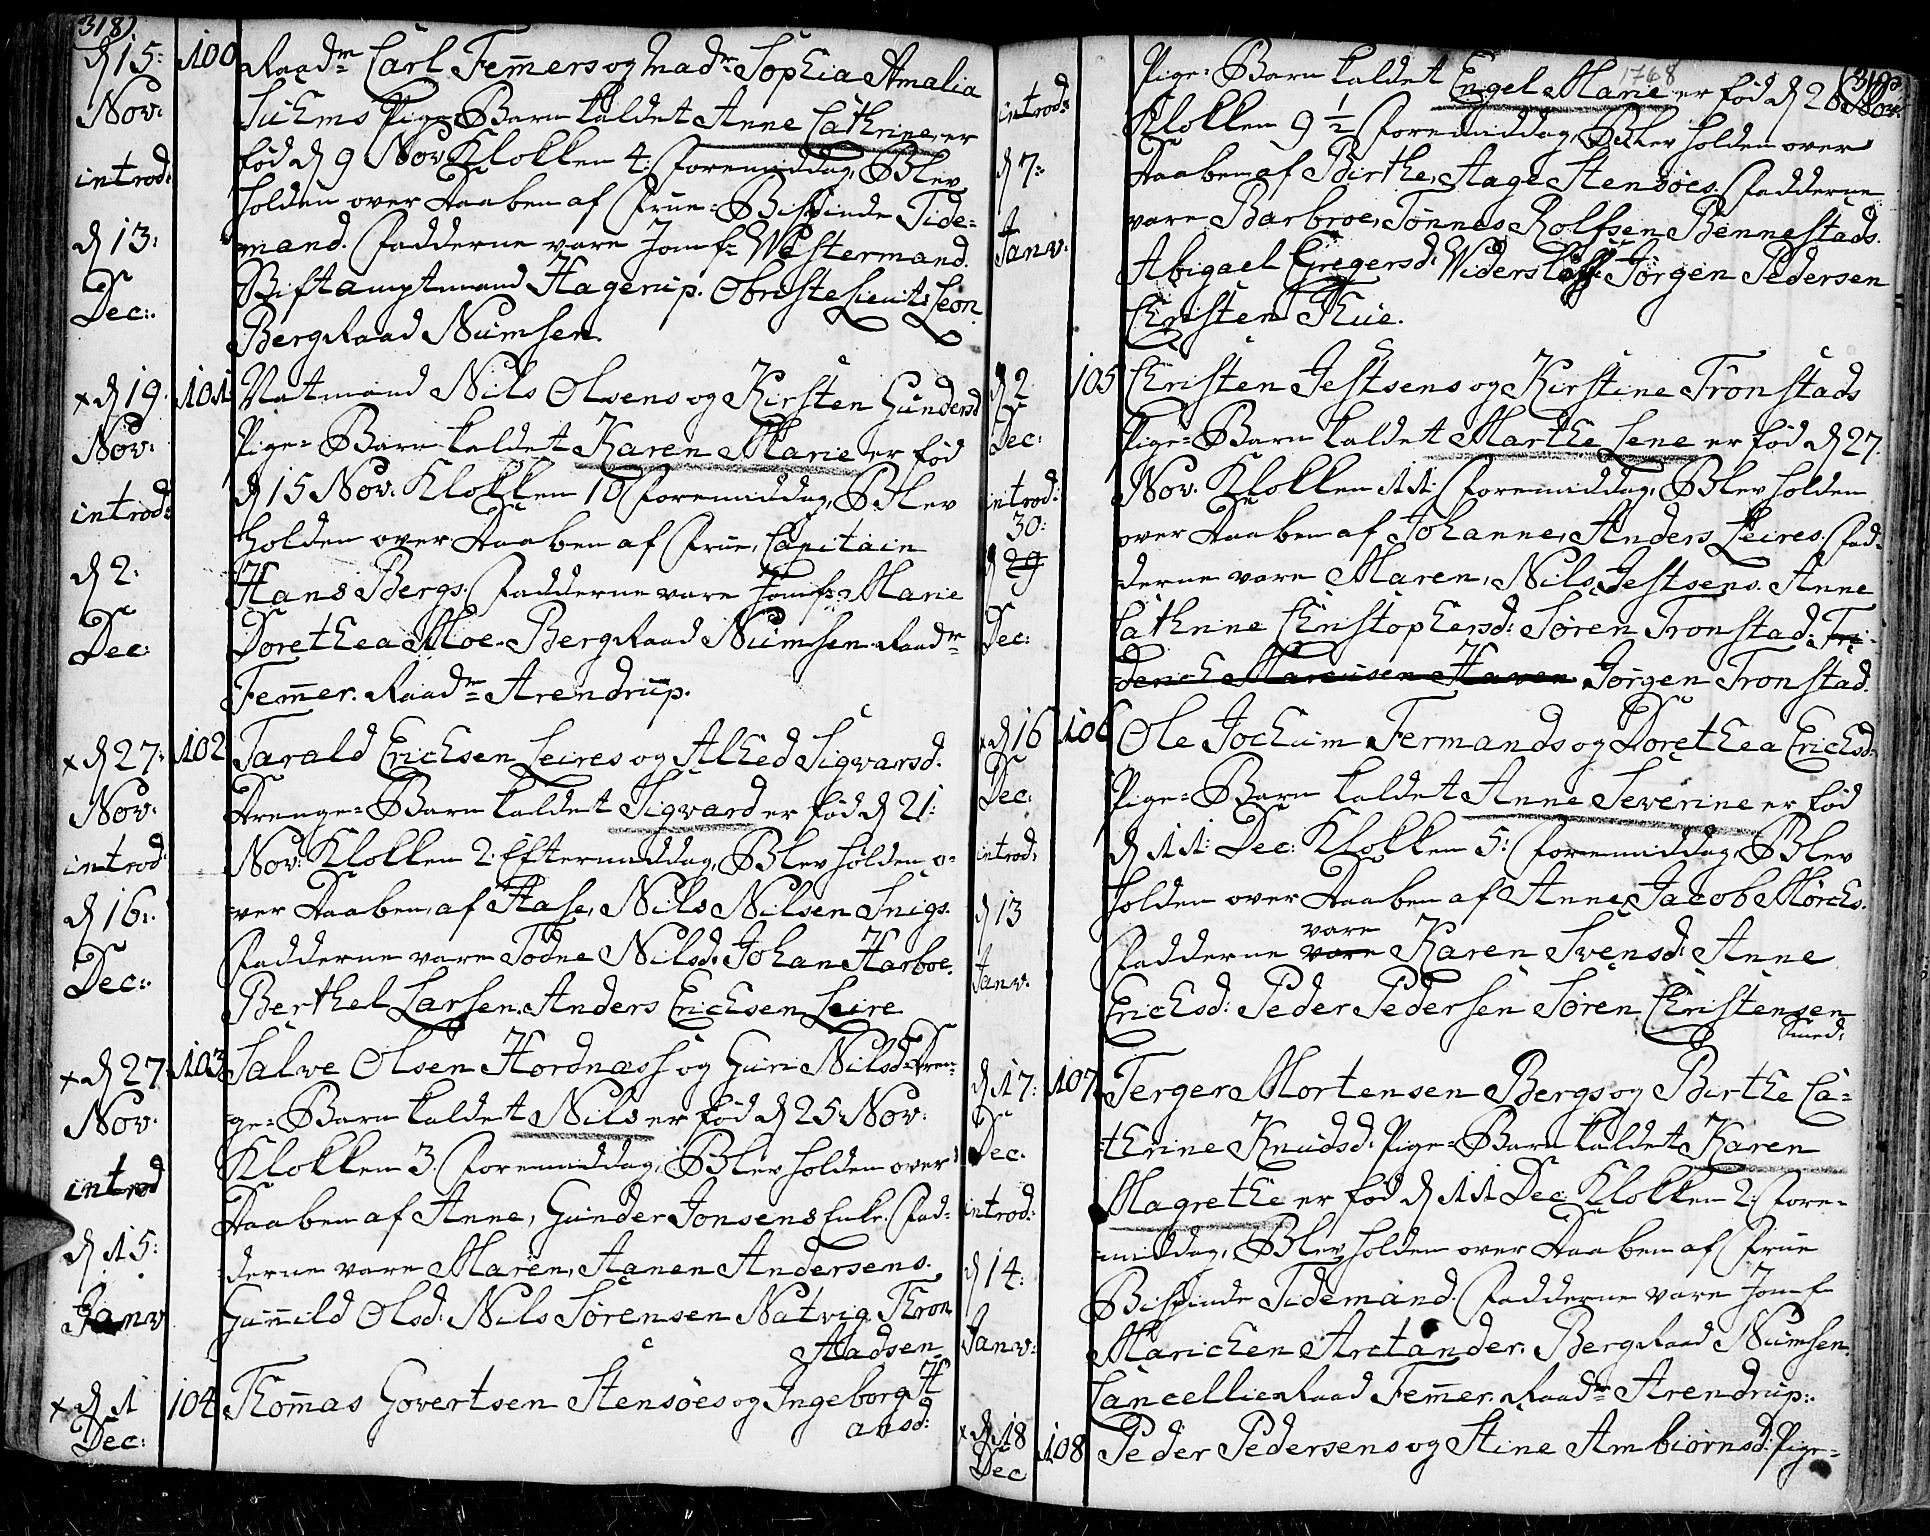 318)
d 15: 100 Raadm Carl Femmers og Madm Sophia Amalia
Nov: Suhms Pige-Barn kaldet Anne Cathrine er
introd: fød d 9 Nov: Klokken 4: Formiddag, Blev
holden over Daaben af Frue-Bispinde Tide-
d 13: mand. Fadderne vare Jomf: Westermand.
Dec: Stiftamptmand Hagerup. Obriste Lieut: Leon
BergRaad Numsen.
x d 19: 101 Natmand Nils Olsens og Kirsten Gundersd
Nov: Pige-Barn kaldet Karen Marie er fød
introd: d 15 Nov: Klokken 10 Formiddag, Blev
holden over Daaben af Frue, Capitain
d 2: Hans Bergs. Fadderne vare Jomf: Marie
Dec: Dorethea Moe. BergRaad Numsen. Raadm
Femmer. Raadm Arendrup.
x d 27: 102 Tarald Erichsen Leires og Alhed Sigvarsd.
Nov: Drenge-Barn kaldet Sigvard er fød d 21:
introd: Nov: Klokken 2: Eftermiddag, Blev holden o-
d 16: ver Daaben, af Aase, Nils Nilsen Snigs.
Fadderne vare Todne Nilsd: Johan Harboe.
Dec: Berthel Larsen. Anders Erichsen Leire
x d 27 103 Salve Olsen Hordnæss og Guri Nilsd: Dren-
Nov: ge-Barn kaldet Nils er fød d 25 Nov:
Klokken 3. Formiddag, Blev holden over
introd Daaben af Anne, Gunder Jonsens Enke. Fad-
d 15: derne vare Maren, Aanen Andersens.
Janv Gunnild Olsd: Nils Sørensen Natvig. Thron
Aadsen.
x d 1 104 Thommas Govertsen Stensøes og Ingeborg H
Dec: ansd:
1768
(319
Pige-Barn kaldet Engel Marie er fød d 28 Nov:
introd: Klokken 9 1/2 Formiddag, Blev holden over
d 7: Daaben af Birthe, Aage Stensøes. Fadderne
vare Barbroe, Tønnes Rolfsen Bennestads.
Janv: Abigael Gregersd: Jørgen Pedersen
Christen Thue.
d 2 105 Christen Jestsens og Kirstine Tronstads
Dec: Pige-Barn kaldet Marthe Lene er fød d 27.
introd: Nov. Klokken 11: Formiddag, Blev holden
30: over Daaben af Johanne, Anders Leires. Fad-
d 29 derne vare Maren, Nils Jestsens. Anne
Dec: Cathrine Christophersd: Søren Tronstad. Fri-
derich Marcusen Haven. Jørgen Tronstad.
x d 16 106 Ole Jochum Fermands og Dorethea Erichsd:
Dec: Pige-Barn kaldet Anne Severine er fød
introd: d 11: Dec: Klokken 5: Formiddag, Blev
d 13 holden over Daaben af Anne, Jacob Mørchs.
vare
Fadderne vare Karen Svensd: Anne
Janv: Erichsd: Peder Pedersen Søren Christensen
Smed:
d 17: 107 Terger Mortensen Bergs og Birthe Ca-
Dec: thrine Knudsd: Pige-Barn kaldet Karen
introd: Magrethe er fød d 11 Dec: Klokken 2: For-
middag, Blev holden over Daaben af Frue
d 14: Bispinde Tidemand. Fadderne vare Jomf
Janv: Marichen Arctander. BergRaad Numsen.
CancellieRaad Femmer. Raadm Arendrup:
x d 18 108 Peder Pedersens og Stine Ambiørnsd: Pige-
Dec